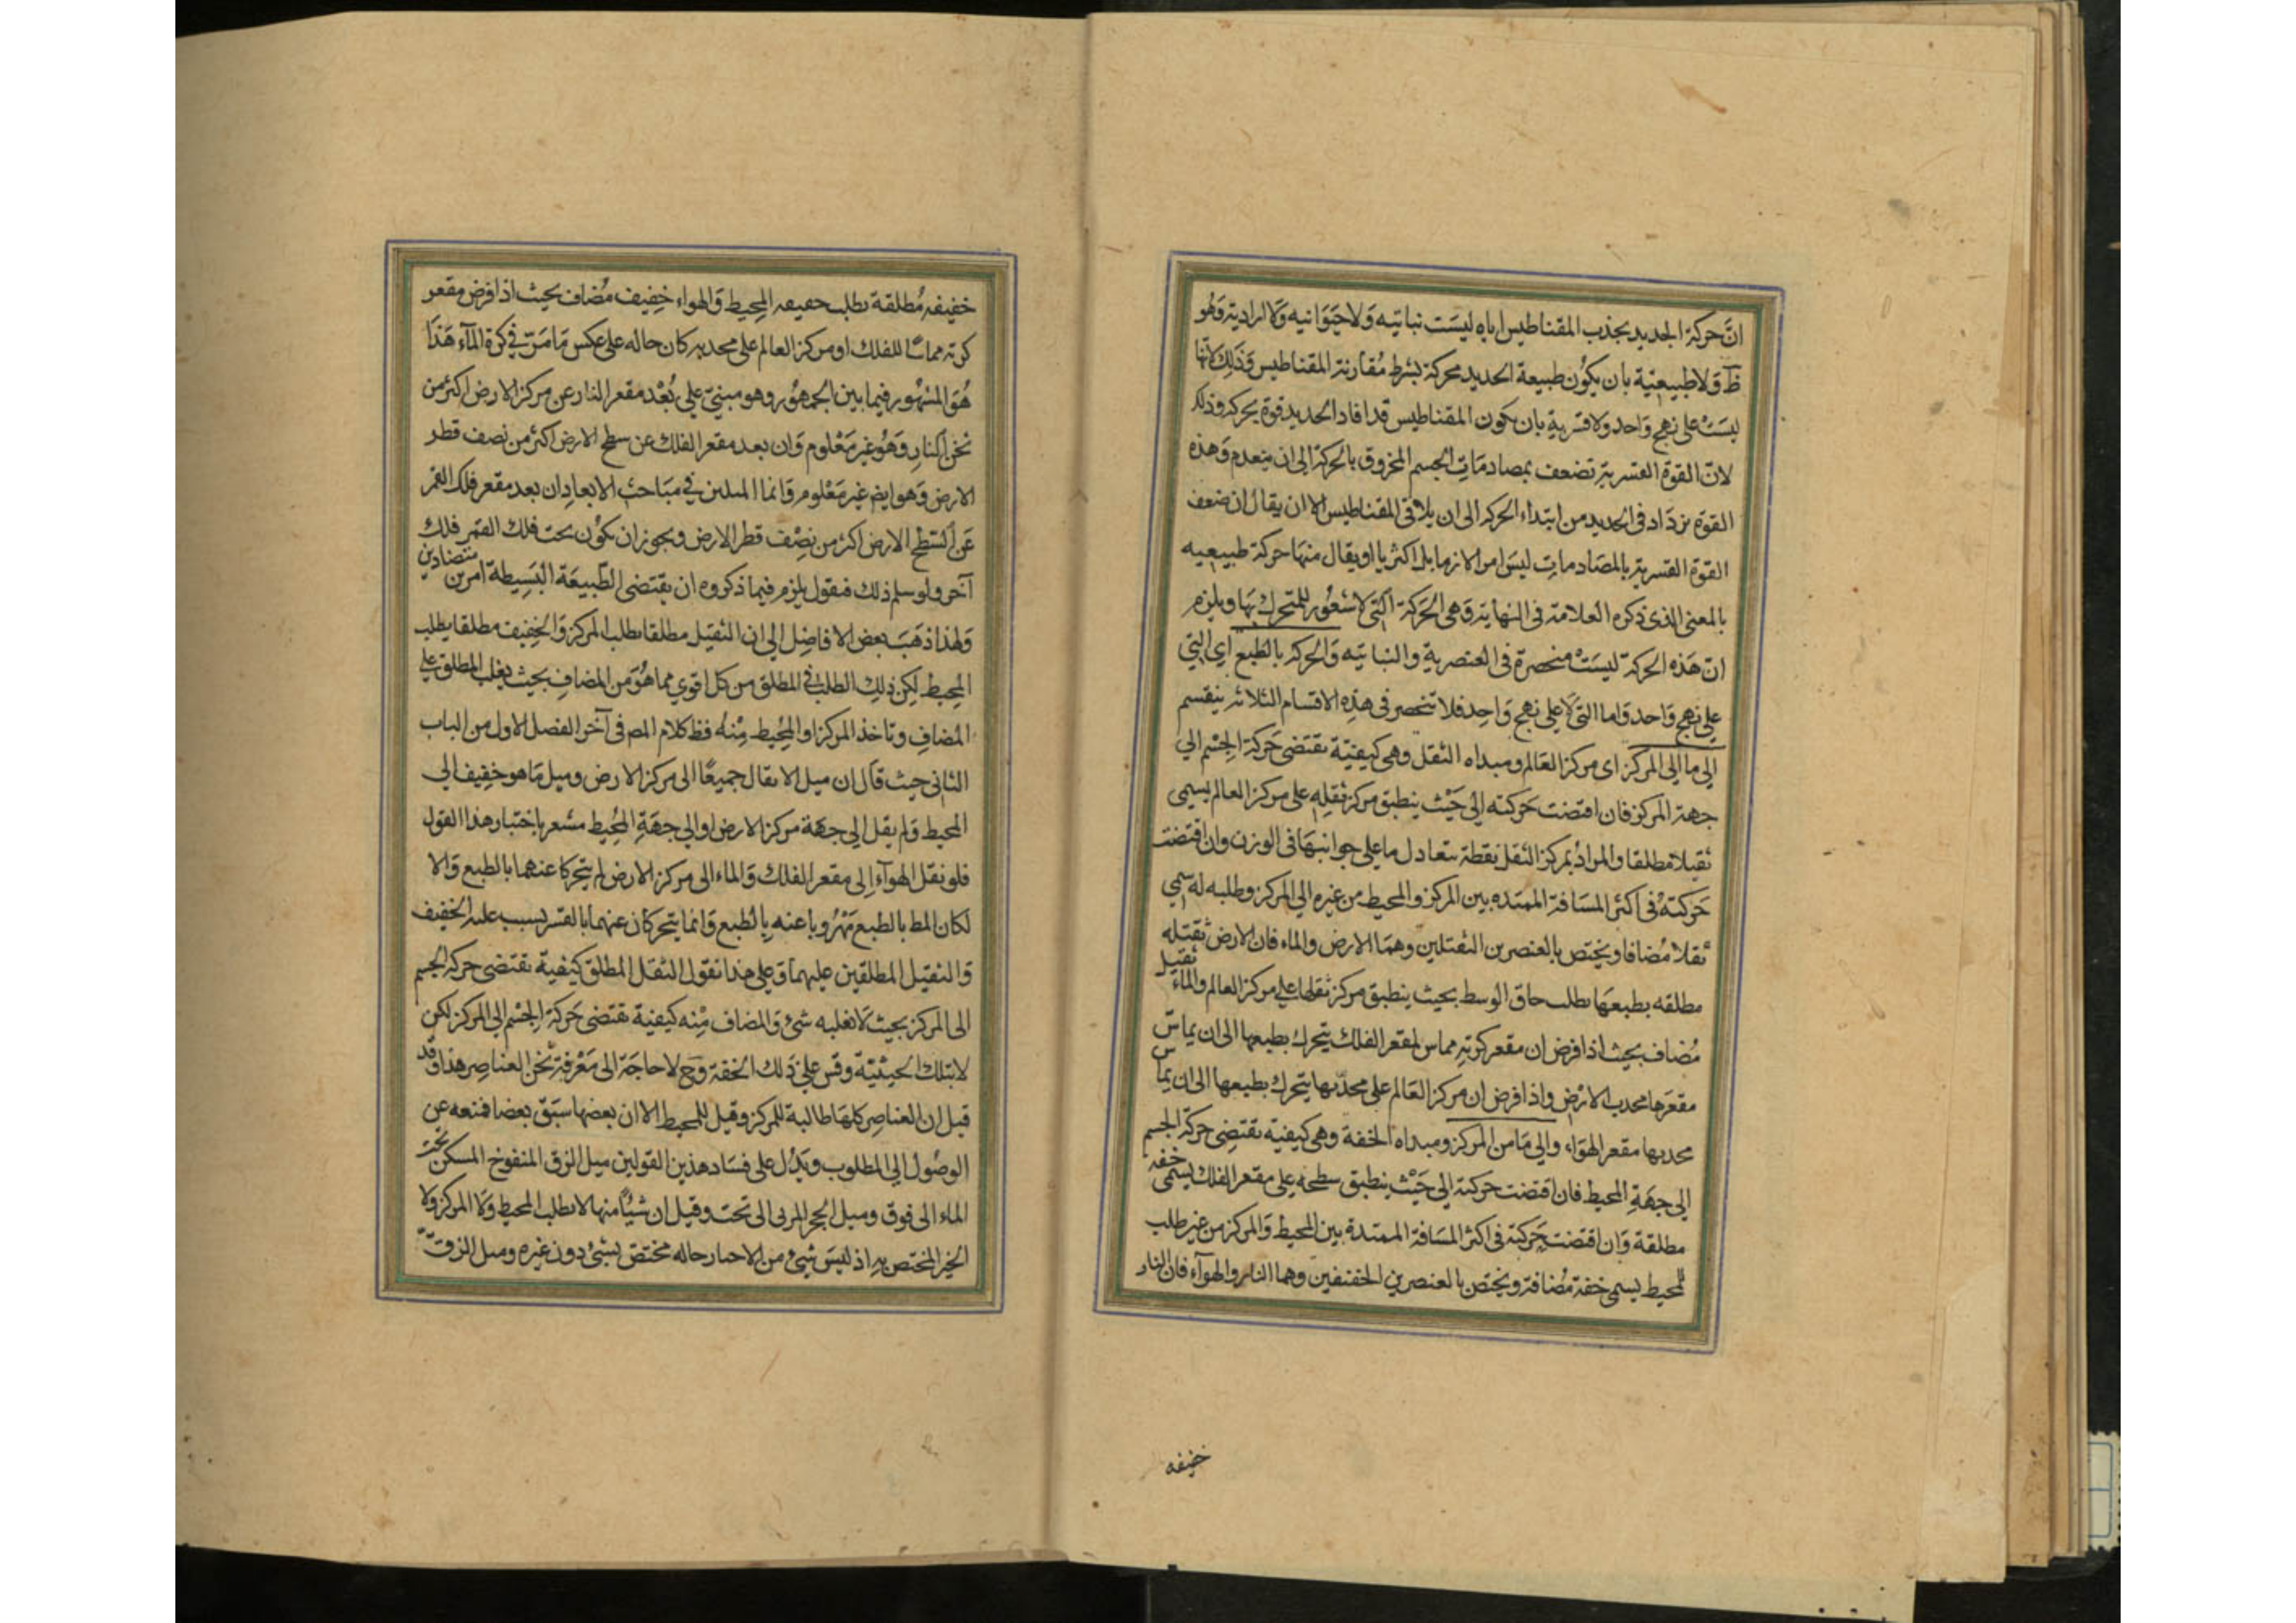 انّ حركة الحديد بجذب المقناطيس اياه ليست نباتيه ولا حيوانيه ولا ارادية وهو
ظ ولا طبيعية بان يكون طبيعة الحديد محركة بشرط مقارنة المقناطيس وذلك لانها
ليست على نهج واحد ولا قسرية بان يكون المقناطيس قد افاد الحديد قوة يحركه وذلك
لانّ القوة القسرية تضعف بمصادمات الجسم المخروق بالحركة الى ان ينعدم وهذه
القوة يزداد في الحديد من ابتداء الحركه الى ان يلاقى المقناطيس الا ان يقال ان ضعف
القوة القسرية بالمصادمات ليس امرا لازما بل اكثريا او يقال منها حركة طبيعيه
بالمعنى الذى ذكره العلامة في النهاية وهى الحركة التى لا شعور للمتحرك بها ويلزم
انّ هذه الحركة ليست منحصرة في العنصرية والنباتيه والحركه بالطبع اى التي
على نهج واحد واما التى لا على نهج واحد فلا تنحصر في هذه الاقسام الثلاثه ينقسم
الى ما الى المركز اى مركز العالم ومبداه الثقل وهى كيفيّة تقتضى حركة الجسم الى
جهة المركز فان اقتضت حركته الى حيث ينطبق مركز ثقله على مركز العالم يسمى
ثقيلا مطلقا والمراد بمركز الثقل نقطة يتعادل ما على جوانبها في الوزن وان اقتضت
حركته في اكثر المسافة الممتده بين المركز والمحيط من غيره الى المركز وطلبه له سمي
ثقلا مضافا ويختص بالعنصرين الثقيلين وهما الارض والماء فان الارض ثقيله
مطلقه بطبعها يطلب حاق الوسط بحيث ينطبق مركز ثقلها على مركز العالم والماء ثقيل
مضاف بحيث اذا فرض ان مقعر كرته مماس لمقعر الفلك يتحرك بطبعها الى ان يماسّ
مقعرها محدب الارض واذا فرض ان مركز العالم على محدّبها يتحرك بطبعها الى ان يماس
محدبها مقعر الهواء والى ما من المركز ومبداه الخفة وهى كيفية تقتضى حركة الجسم
الى جهة المحيط فان اقتضت حركته الى حيث ينطبق سطحه على مقعر الفلك يسمى خفه
مطلقة وان اقتضت حركته في اكثر المسافة الممتدة بين المحيط والمركز من غير طلب
للمحيط يسمى خفة مضافة ويختص بالعنصرين الخفيفين وهما النار والهوآء فان النار
خفيفه
خفيفه مطلقة يطلب المحيط والهواء خفيف مضاف بحيث اذا فرض مقعر
كرته مماسّا للفلك او مركز العالم على محدبه كان حاله على عكس ما مرّ في كرة المآء هذا
هو المشهور فيما بين الجمهور وهو مبنيّ على بعد مقعر النار عن مركز الارض اكثر من
ثخن النار وهو غير معلوم وان بعد مقعر الفلك عن سطح الارض اكثر من نصف قطر
الارض وهو ايضا غير معلوم وانما المبين في مباحث الابعاد ان بعد مقعر فلك القمر
عن السطح الارض اكثر من نصف قطر الارض ويجوز ان يكون تحت فلك القمر فلك
آخر ولو سلم ذلك فنقول يلزم فيما ذكروه ان يقتضى الطّبيعة البسيطة امرين متضادين
ولهذا ذهب بعض الافاضل الى ان الثقيل مطلقا يطلب المركز والخفيف مطلقا يطلب
المحيط لكن ذلك الطلب في المطلق من كل اقوى مما هو من المضاف بحيث يغلب المطلق على
المضاف وتاخذ المركز او المحيط منه فظ كلام المص في آخر الفصل الاول من الباب
الثاني حيث قال ان ميل الاثقال جميعًا الى مركز الارض وميل ما هو خفيف الى
المحيط ولم يقل الى جهة مركز الارض او الى جهة المحيط مشعر باختيار هذا القول
فلو نقل الهوآء الى مقعر الفلك والماء الى مركز الارض لم يتحركا عنهما بالطبع والا
لكان المط بالطبع مهروبا عنه بالطبع وانما يتحركان عنهما بالقسر بسبب غلبة الخفيف
والثقيل المطلقين عليهما وعلى هذا نقول الثقل المطلق كيفية تقتضى حركة الجسم
الى المركز بحيث لا تغلبه شئ والمضاف منه كيفية تقتضى حركة الجسم الى المركز لكن
لا بتلك الحيثيّة وقس على ذلك الخفة وح لا حاجة الى معرفة ثخن العناصر هذا وقد
قيل ان العناصر كلها طالبة للمركز وقيل للمحيط الا ان بعضها سبق بعضا فمنعه عن
الوصول الى المطلوب ويدل على فساد هذين القولين ميل الزق المنفوخ المسكن تحت
الماء الى فوق وميل الحجر المرمى الى تحت وقيل ان شيئا منها لا يطلب المحيط ولا المركز ولا
الحيز المختص به اذ ليس شئ من الاحياز حاله مختص بشئ دون غيره وميل الزقّ